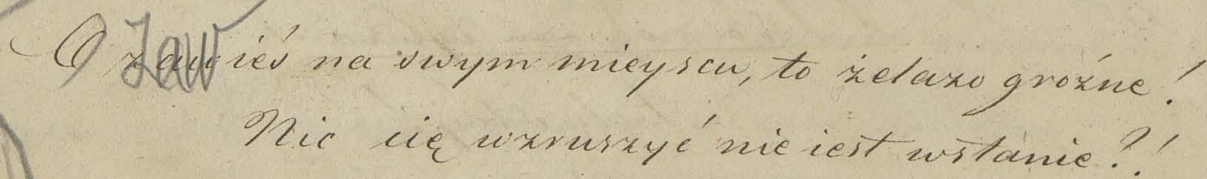 O zawieś na swym mieyscu, to żelazo groźne!
Nic cię wzruszyć nie iest wstanie?!